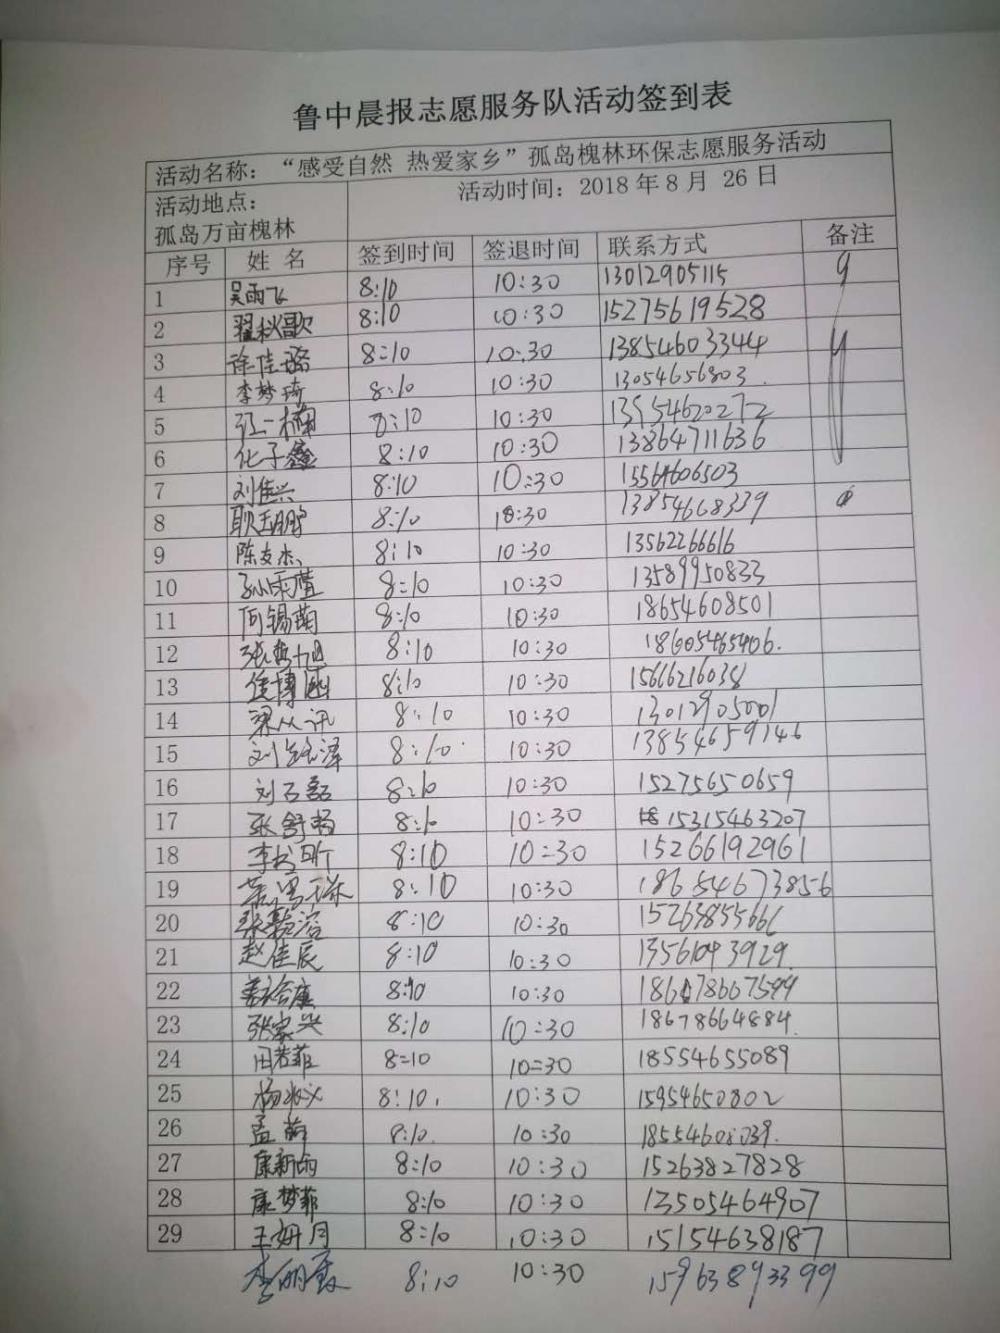 鲁中晨报志愿服务队活动签到表
活动名称：“感受自然 热爱家乡”孤岛槐林环保志愿服务活动
活动地点：
孤岛万亩槐林
活动时间：2018 年 8 月 26 日
序号 姓 名 签到时间 签退时间 联系方式 备注
1 吴雨飞 8:10 10:30 13012905115
2 翟秋歌 8:10 10:30 15275619528
3 徐佳璐 8:10 10:30 13854603344
4 李梦琦 8:10 10:30 13054656803
5 张一楠 8:10 10:30
6 化子鑫 8:10 10:30 13864711636
7 刘佳兴 8:10 10:30 15564606503
8 耿玉鹏 8:10 10:30 13854668339
9 陈友杰 8:10 10:30 13562266616
10 孙雨萱 8:10 10:30 13589950833
11 8:10 10:30 18654608501
12 8:10 10:30 18605465406
13 8:10 10:30 15666216038
14 梁从讯 8:10 10:30 13012905001
15 8:10 10:30 13854659146
16 刘石磊 8:10 10:30 15275650659
17 张舒畅 8:10 10:30 15315463207
18 8:10 10:30 15266192961
19 8:10 10:30 18654673856
20 8:10 10:30 15263855666
21 赵佳辰 8:10 10:30 13561043929
22 8:10 10:30
23 张家兴 8:10 10:30 18678664884
24 田若菲 8:10 10:30 18554655089
25 8:10 10:30 15954650802
26 孟萌 8:10 10:30 18554608039
27 康新雨 8:10 10:30 15263827828
28 康梦菲 8:10 10:30 13505464907
29 王妍月 8:10 10:30 15154638187
李明霞 8:10 10:30 15963893399